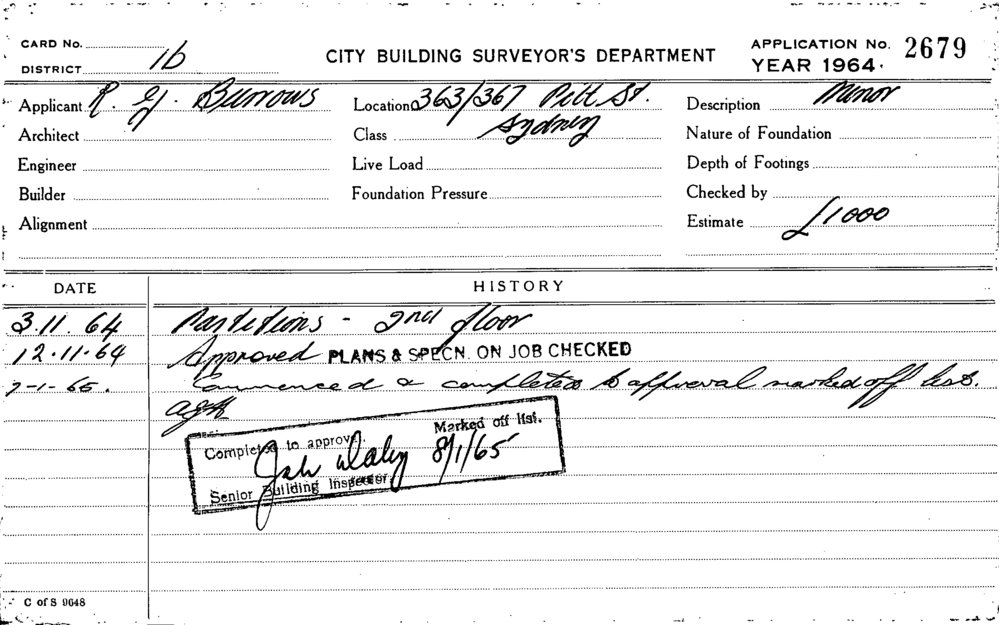 CARD No.
DISTRICT 1b
CITY BUILDING SURVEYOR'S DEPARTMENT
APPLICATION No. 2679
YEAR 1964
Applicant R. G. Burrows
Location 363/367 Pitt St.
Sydney
Description Minor
Architect
Class
Nature of Foundation
Engineer
Live Load
Depth of Footings
Builder
Foundation Pressure
Checked by
Alignment
Estimate £1000
DATE HISTORY
3.11.64 Partitions - 2nd floor
12.11.64 Approved PLANS & SPECN. ON JOB CHECKED
7-1-65. Commenced & completed to approval marked off list.
Completed to approval. Marked off list.
Daley 8/1/65
Senior Building Inspector
C of S 9648